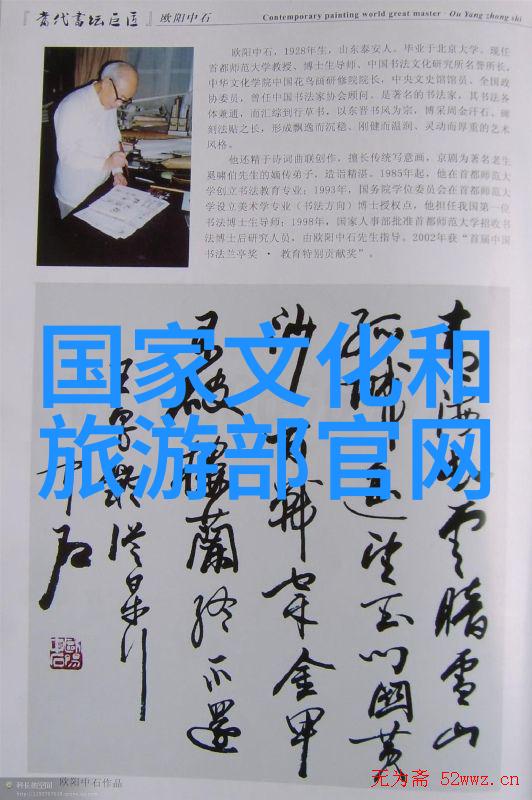 『当代书坛巨匠』欧阳中石
Contemporary painting world great master · Ou Yang zhong shi
欧阳中石，1928年生，山东泰安人。毕业于北京大学。现任
首都师范大学教授、博士生导师、中国书法文化研究所名誉所长，
中华文化学院中国花鸟画研修院院长，中央文史馆馆员、全国政
协委员，曾任中国书法家协会顾问。是著名的书法家，其书法各
体兼通，而汇综到行草书，以东晋书风为宗，博采周金汗石、碑
刻法贴之长，形成飘逸而沉稳、刚健而温润、灵动而厚重的艺术
风格。
他还精于诗词曲联创作，擅长传统写意画，京剧为著名老生
奚啸伯先生的嫡传弟子，造诣精湛。1985年起，他在首都师范大
学创立书法教育专业；1993年，国务院学位委员会在首都师范大
学设立美术学专业（书法方向）博士授权点，他担任我国第一位
书法博士生导师；1998年，国家人事部批准首都师范大学招收书
法博士后研究人员，由欧阳中石先生指导。2002年获“首届中国
书法兰亭奖 · 教育特别贡献奖”。
国家文化和
旅游部官网
青海长云暗雪山
孤城遥望玉门关黄
沙百战穿金甲
不破楼兰终不还
中石
欧阳中石作品
无为斋 52wwz.cn